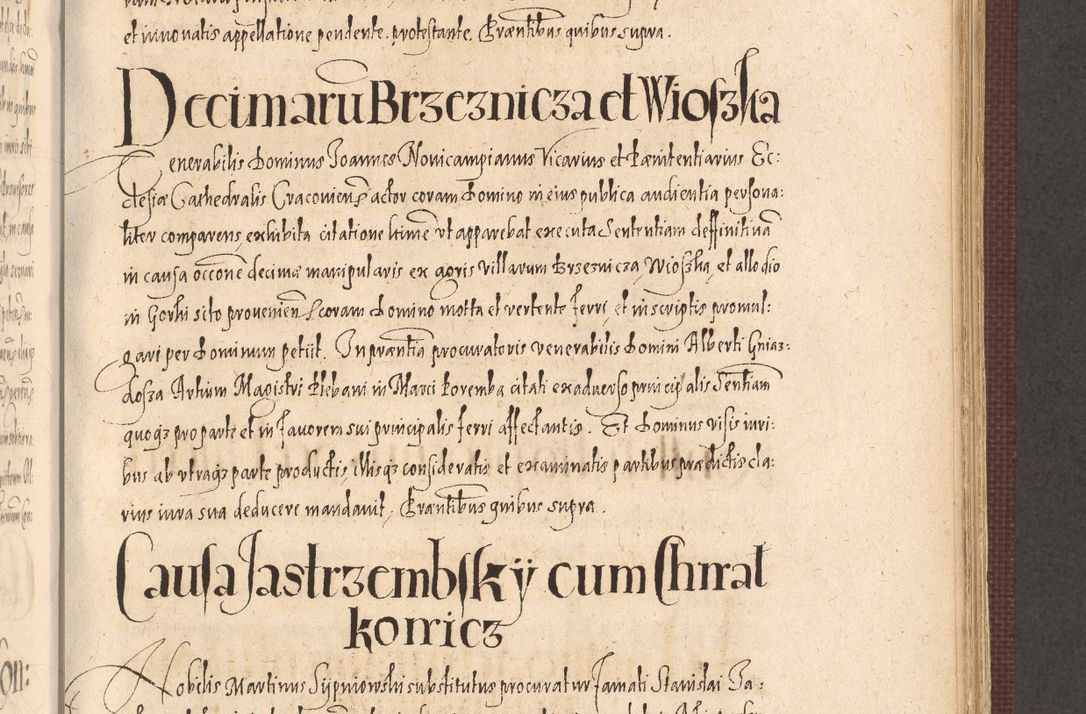 et innovatis appellatione pendente, protestante, Præntibus quibus supra.
Decimaru Brzeznicza et Wioszka
Venerabilis Dominus Joannes Novicampianus Vicarius et Pænitentiarius Ec:
clesiæ Cathedralis Cracovien, actor coram Domino in eius publica audientia persona:
liter comparens, exhibita citatione hime vt apparebat executa Sententiam deffinitiva
in causa occone decimæ manipularis ex agris villarum Brzeznicza, Wioszka, et allodio
in Gorki sito provenien, coram Domino motta et vertente ferri, et in scriptis promul:
gari per Dominum petiit. In præntia procuratoris venerabilis Domini Alberti Gniaz:
dosza Artium Magistri Plebani in Marci Poremba citati ex adverso principalis Sententiam
quoqz pro parte et in favorem sui principalis ferri affectantis. Et Dominus visis iuri:
bus ab vtraqz parte productis, illisqz consideratis et examinatis partibus prædictis cla:
rius iura sua deducere mandavit, Præntibus quibus supra.
Causa Jastrzembsky cum Chwal
kowicz
Nobilis Martinus Sypniowski substitutus procurat ur famati Stanislai Ja: